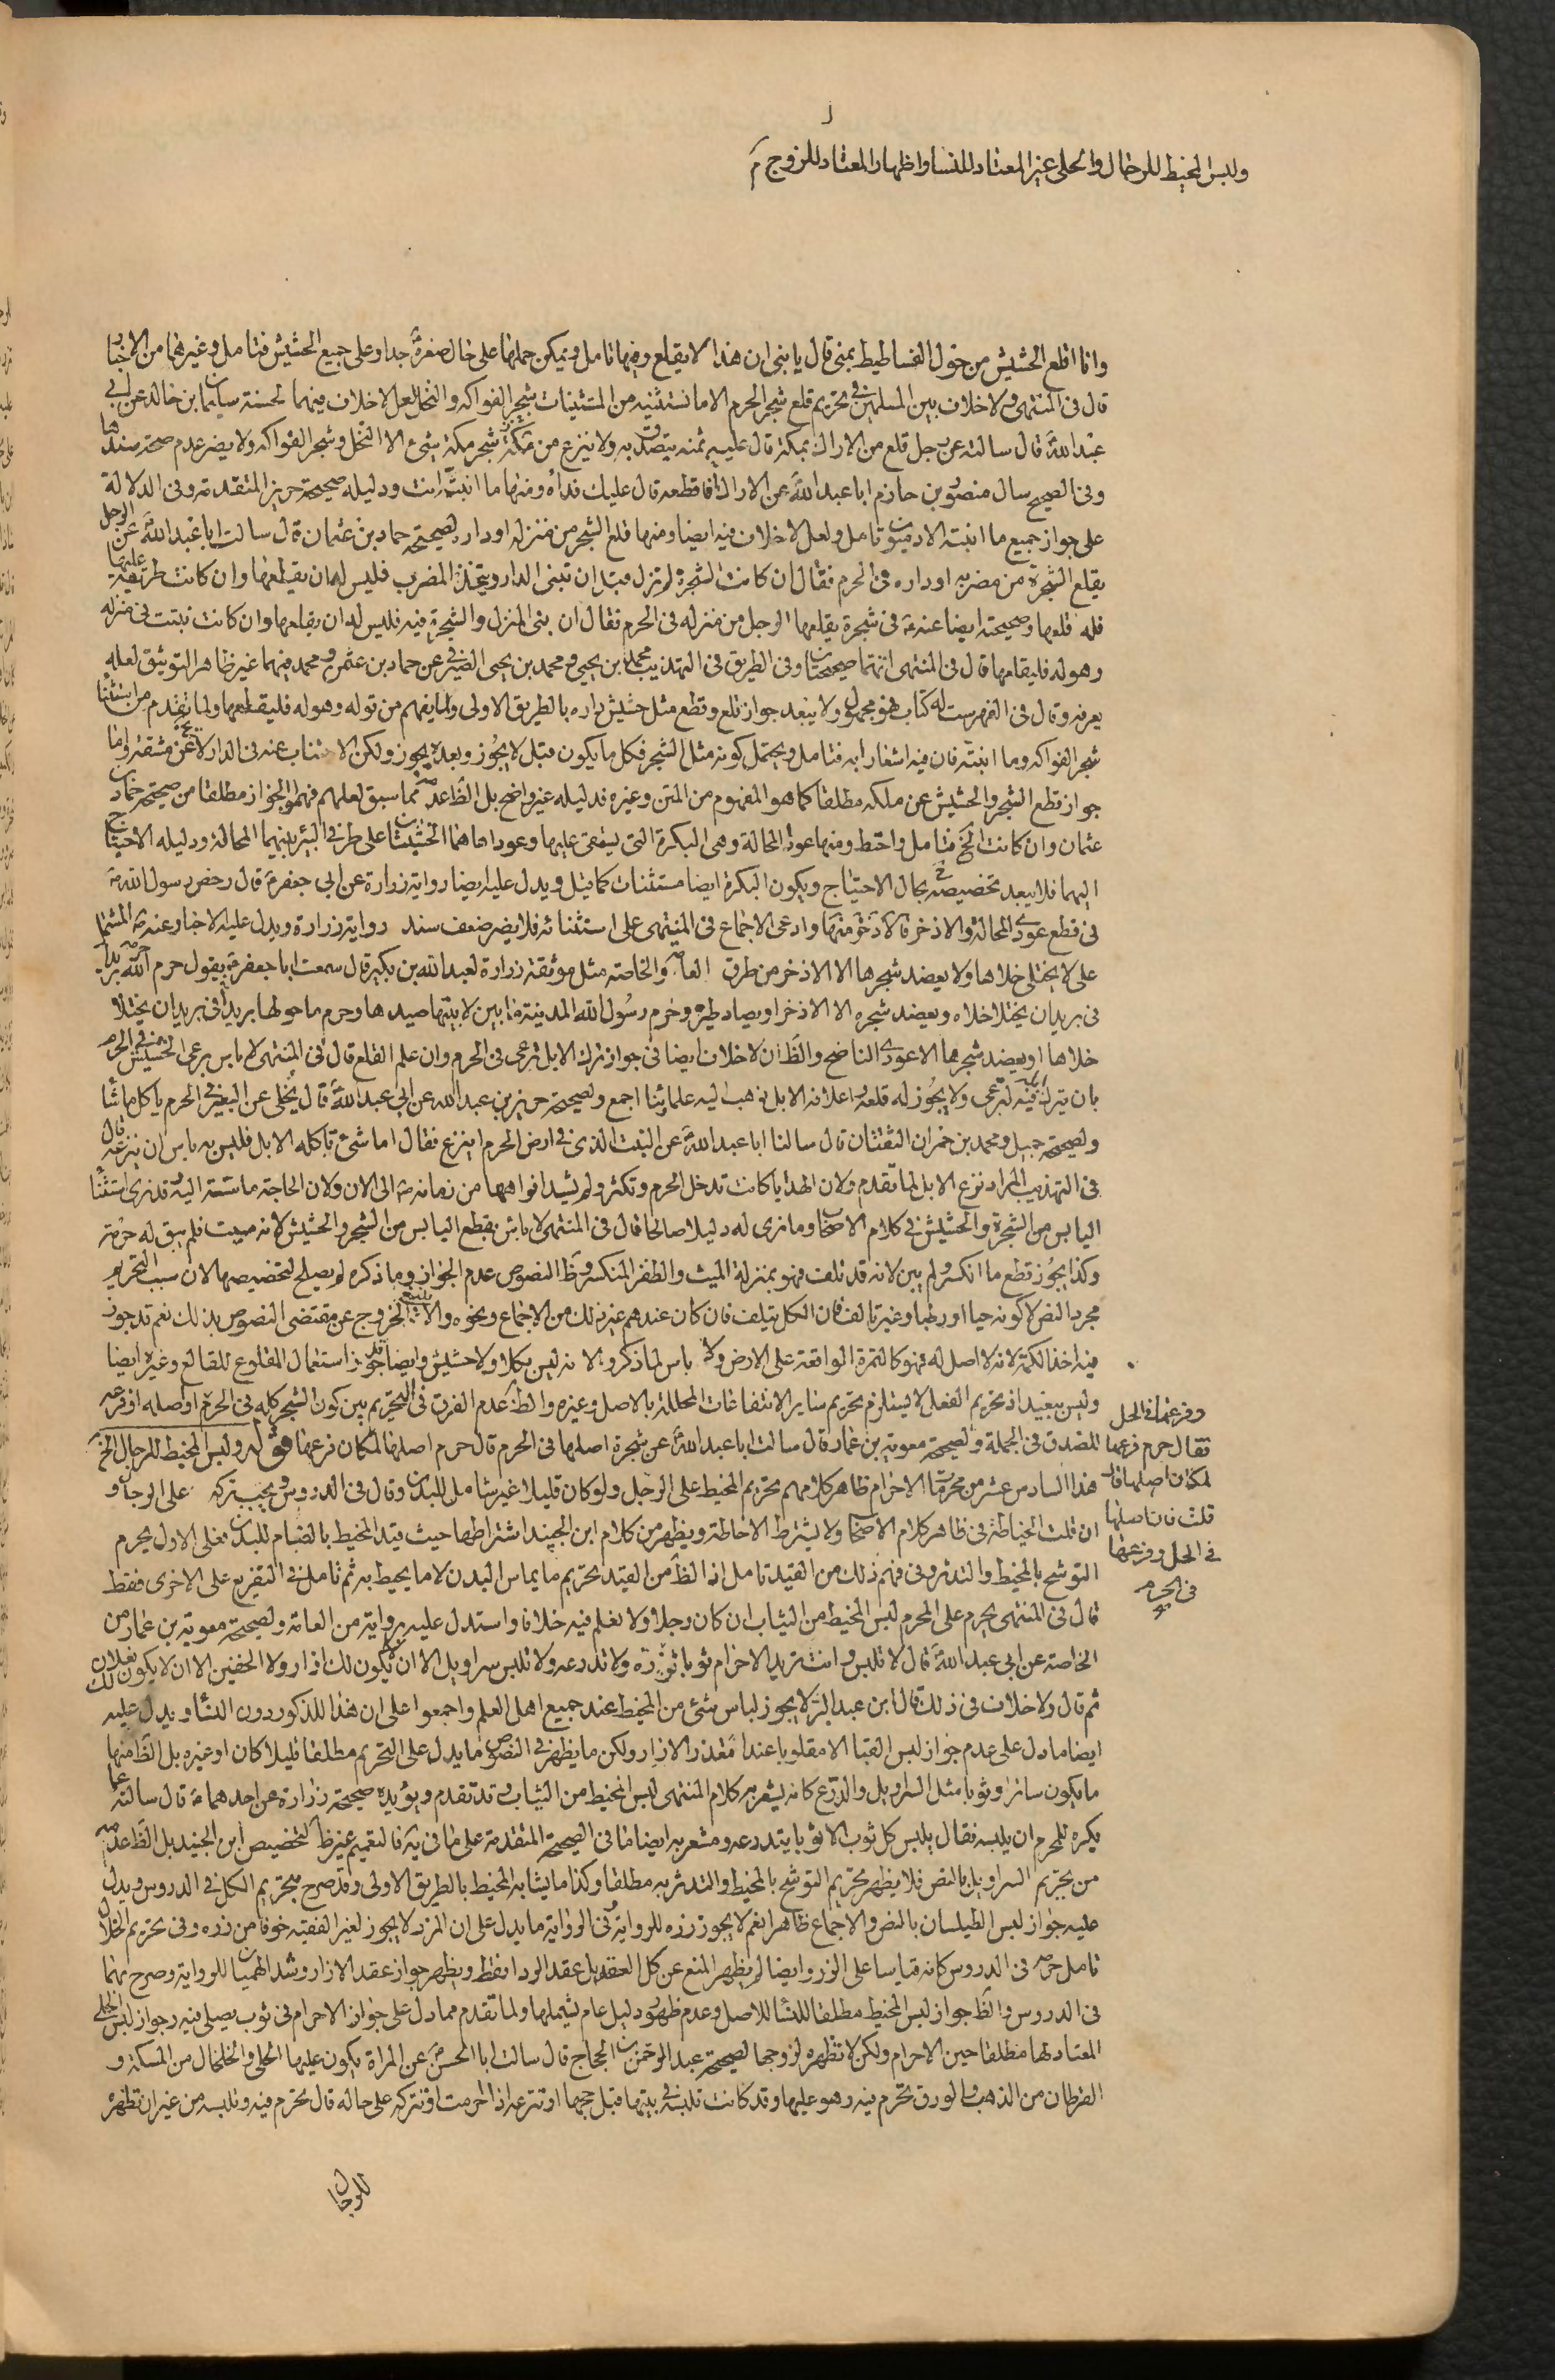 ولبس المخيط للرجال والحلى غير المعتاد للنسا واظهار المعتاد للزوج م
وانا اقلع الحشيش من حول الفساطيط بمنى قال يا بنى ان هذا لا يقلع وفيها تامل ويمكن حملها على حال صغره جدا وعلى جميع الحشيش فتامل وغيرها من الاخبار
قال فى المنتهى ولا خلاف بين المسلمين فى تحريم قلع شجر الحرم الا ما نستثنيه من المستثنيات شجر الفواكه والنخل لعل لا خلاف فيهما لحسنة سليمان بن خالد عن ابى
عبد الله ع قال سالته عن رجل قلع من الاراك بمكة قال عليه ثمنه يتصدق به ولا ينزع من شجر مكة شىء الا النخل وشجر الفواكه ولا يضر عدم صحة سندها
وفى الصحيح سال منصور بن حازم ابا عبد الله ع عن الاراك فاقطعه قال عليك فداؤه ومنها ما انبته انت ودليله صحيحة حريز المتقدمة وفى الدلالة
على جواز جميع ما انبته الادميون تامل ولعل لا خلاف فيه ايضا ومنها قلع الشجر من منزله او داره لصحيحة حماد بن عثمان قال سالت ابا عبد الله ع عن الرجل
يقلع الشجرة من مضربه او داره فى الحرم فقال ان كانت الشجرة لم تزل قبل ان تبنى الدار ويتخذ المضرب فليس له ان يقطعها وان كانت طريقة عليها
فله قلعها وصحيحته ايضا عنه ع فى شجرة يقلعها الرجل من منزله فى الحرم فقال ان بنى المنزل والشجرة فيه فليس له ان يقلعها وان كانت نبتت فى منزله
وهو له فليقلعها قال فى المنتهى انهما صحيحتان وفى الطريق فى التهذيب محمد بن يحيى ومحمد بن يحيى الصيرفى عن حماد بن عثمن ومحمد فيهما غير ظاهر التوثيق لعله
يعرفه وقال فى الفهرست له كتاب فهو مجهول ولا يبعد جواز قلع وقطع مثل حشيش داره بالطريق الاولى ولما يفهم من قوله وهو له فليقطعها ولما تقدم من استثنا
شجر الفواكه وما انبته فان فيه اشعارا به فتامل ويحتمل كونه مثل الشجر فكل ما يكون قبل لا يجوز وبعده يجوز ولكن الاجتناب عنه فى الدار لا يخ عن مشقة واما
جواز قطع الشجر والحشيش عن ملكه مطلقا كما هو المفهوم من المتن وغيره فدليله غير واضح بل الظ عدمه مما سبق لعلهم فهموا الجواز مطلقا من صحيحة حماد
عثمان وان كانت الخ فتامل واحتط ومنها عودا المحالة وهى البكرة التى يستقى عليها وعوداها هما الخشبتان على طرفى البئر بينهما المحالة ودليله الاحتياج
اليهما فلا يبعد تخصيصه بحال الاحتياج ويكون البكرة ايضا مستثنات كما قيل ويدل عليه ايضا رواية زرارة عن ابى جعفر ع قال رخص رسول الله ص
فى قطع عودى المحالة والاذخر فالاذخر منها وادعى الاجماع فى المنتهى على استثنائه فلا يضر ضعف سند رواية زرارة ويدل عليه الاخبار عنه ص المشتملة
على لا يختلى خلاها ولا يعضد شجرها الا الاذخر من طرق العامة والخاصة مثل موثقة زرارة لعبد الله بن بكير قال سمعت ابا جعفر ع يقول حرم الله حرمه بريدا
فى بريد ان يختلا خلاه ويعضد شجره الا الاذخر او يصاد طيره وحرم رسول الله المدينة ما بين لابتيها صيدها وحرم ما حولها بريدا فى بريد ان يختلا
خلاها او يعضد شجرها الا عودى الناضح والظ ان لا خلاف ايضا فى جواز ترك الابل ترعى فى الحرم وان علم القلع قال فى المنتهى لا باس برعى الحشيش فى الحرم
بان يترك فيه لترعى ولا يجوز له قلعه واعلافه الابل ذهب اليه علمائنا اجمع ولصحيحة حريز بن عبد الله عن ابى عبد الله ع قال يخلى عن البعير فى الحرم ياكل ما شا
ولصحيحة جميل ومحمد بن حمران الثقتان قال سالنا ابا عبد الله ع عن النبت الذى فى ارض الحرم اينزع فقال اما شىء تاكله الابل فليس به باس ان تنزعه قال
فى التهذيب المراد نزع الابل لما تقدم ولان الهدايا كانت تدخل الحرم وتكثر ولم يشد افواهها من زمانه ص الى الان ولان الحاجة ماسة اليه وقد نرى استثنا
اليابس من الشجرة والحشيش فى كلام الاصحاب وما نرى له دليلا صالحا قال فى المنتهى لا باس بقطع اليابس من الشجر والحشيش لانه ميت فلم يبق له حرمة
وكذا يجوز قطع ما انكسر ولم يبن لانه قد تلف فهو بمنزلة الميت والظفر المنكسر وظ النصوص عدم الجواز وما ذكره لم يصلح لتخصيصها لان سبب التحريم
مجرد النص لا كونه حيا او رطبا وغير تالف فان الكل يتلف فان كان عندهم غير ذلك من الاجماع ونحوه والا يشكل الخروج عن مقتضى النصوص بذلك نعم قد جوز
فيه اخذ الكمئة لانه لا اصل له فهو كالثمرة الواقعة على الارض ولا باس لما ذكرولانه ليس بكلاء ولا حشيش وايضا جوز استعمال المقلوع للقالع وغيره ايضا
وليس ببعيد اذ تحريم الفعل لا يستلزم تحريم سائر الانتفاعات المحللة بالاصل وغيره والظ عدم الفرق فى التحريم بين كون الشجر كله فى الحرم او اصله او فرعه
للصدق فى الجملة ولصحيحة معوية بن عمار قال سالت ابا عبد الله ع عن شجرة اصلها فى الحرم قال حرم اصلها لمكان فرعها قوله ولبس المخيط للرجال الخ
هذا السادس عشر من محرمات الاحرام ظاهر كلامهم تحريم المخيط على الرجل ولو كان قليلا غير شامل للبدن وقال فى الدروس ويجب تركه على الرجال و
ان قلت الخياطة فى ظاهر كلام الاصحاب ولا يشترط الاحاطة ويظهر من كلام ابن الجنيد اشتراطها حيث قيد المخيط بالضام للبدن فعلى الاول يحرم
التوشح بالمخيط والتدثر وفى فهم ذلك من القيد تامل اذ الظ من القيد تحريم ما يماس البدن لا ما يحيط به ثم تامل فى التفريع على الاخرى فقط
قال فى المنتهى يحرم على المحرم لبس المخيط من الثياب ان كان رجلا ولا نعلم فيه خلافا واستدل عليه برواية من العامة ولصحيحة معوية بن عمار من
الخاصة عن ابى عبد الله ع قال لا تلبس وانت تريد الاحرام ثوبا تزره ولا تدرعه ولا تلبس سراويل الا ان يكون لك ازار ولا الخفين الا ان لا يكون لك نعلان
ثم قال ولا خلاف فى ذلك قال ابن عبد البر لا يجوز لباس شىء من المخيط عند جميع اهل العلم واجمعوا على ان هذا للذكور دون النسا ويدل عليه
ايضا ما دل على عدم جواز لبس القبا الا مقلوبا عند فقد الازار ولكن ما يظهر فى النصوص ما يدل على التحريم مطلقا قليلا كان او غيره بل الظ منها
ما يكون ساترا وثوبا مثل السراويل والدرع كانه يشعر به كلام المنتهى لبس المخيط من الثياب وقد تقدم ويؤيده صحيحة زرارة عن احدهما ع قال سالته عما
يكره للمحرم ان يلبسه فقال يلبس كل ثوب الا ثوبا يتدرعه ومشعر به ايضا ما فى الصحيحة المتقدمة على ما فى يه فالتعميم غير ظ كتخصيص ابن الجنيد بل الظ عدمه
من تحريم السراويل بالنص فلا يظهر تحريم التوشح بالمخيط والتدثر به مطلقا وكذا ما يشابه المخيط بالطريق الاولى وقد صرح بتحريم الكل فى الدروس ويدل
عليه جواز لبس الطيلسان بالنص والاجماع ظاهرا نعم لا يجوز زره للرواية وفى الرواية ما يدل على ان المزر لا يجوز لغير الفقيه خوفا من زره وفى تحريم الخلال
تامل حرمه فى الدروس كانه قياسا على الزر وايضا لم يظهر المنع عن كل العقد بل عقد الردا فقط ويظهر جواز عقد الازار وشد الهميان للرواية وصرح بهما
فى الدروس والظ جواز لبس المخيط مطلقا للنسا للاصل وعدم ظهور دليل عام ليشملها ولما تقدم مما دل على جواز الاحرام فى ثوب يصلى فيه وجواز لبس الحلى
المعتاد لها مطلقا حين الاحرام ولكن لا تظهره لزوجها لصحيحة عبد الرحمن بن الحجاج قال سالت ابا الحسن ع عن المراة يكون عليها الحلى والخلخال من المسكة و
القرطان من الذهب والورق تحرم فيه وهو عليها وقد كانت تلبسه فى بيتها قبل حجها او تنزعه اذا احرمت او تتركه على حاله قال تحرم فيه وتلبسه من غير ان تظهره
وفرعها فى الحل
فقال حرم فرعها
لمكان اصلها قال
قلت فان اصلها
فى الحل وفرعها
فى الحرم
للرجال